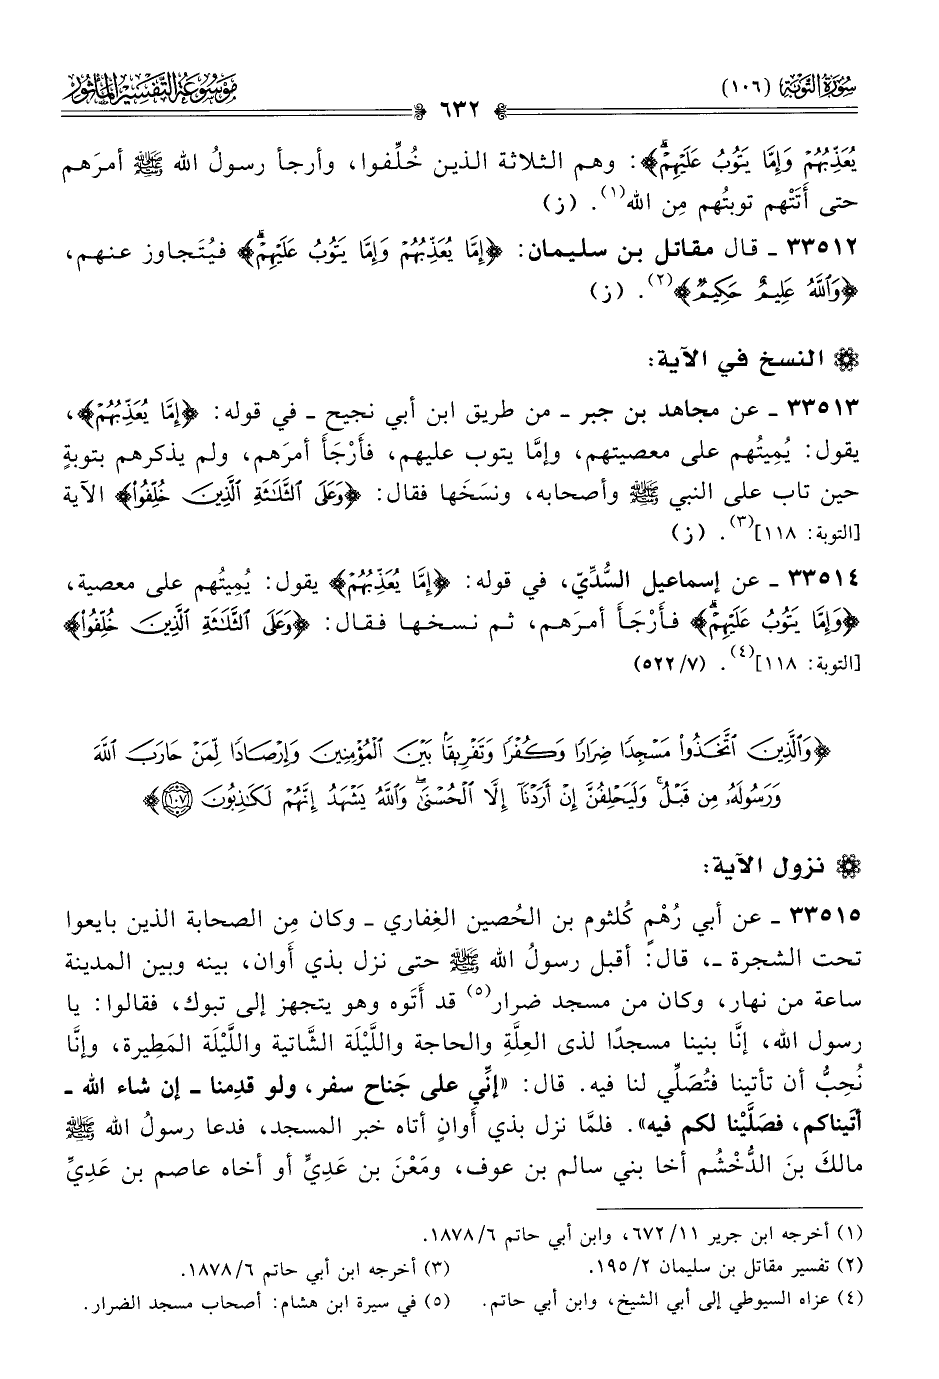 سُورَةُ التَّوْبَةِ (١٠٦)
٦٣٢
مَوْسُوعَةُ التَّفْسِيرِ المَأْثُورِ
يُعَذِّبُهُمْ وَإِمَّا يَتُوبُ عَلَيْهِمْۗ﴾: وهم الثلاثة الذين خُلِّفوا، وأرجأ رسولُ الله ﷺ أمرَهم
حتى أَتَتْهم توبتُهم مِن الله(١). (ز)
٣٣٥١٢ ـ قال مقاتل بن سليمان: ﴿إِمَّا يُعَذِّبُهُمْ وَإِمَّا يَتُوبُ عَلَيْهِمْۗ﴾ فيُتَجاوز عنهم،
﴿وَٱللَّهُ عَلِيمٌ حَكِيمٌ﴾(٢). (ز)
النسخ في الآية:
٣٣٥١٣ ـ عن مجاهد بن جبر ـ من طريق ابن أبي نجيح ـ في قوله: ﴿إِمَّا يُعَذِّبُهُمْ﴾،
يقول: يُمِيتُهم على معصيتهم، وإمَّا يتوب عليهم، فأَرْجَأَ أمرَهم، ولم يذكرهم بتوبةٍ
حين تاب على النبي ﷺ وأصحابه، ونسَخَها فقال: ﴿وَعَلَى ٱلثَّلَٰثَةِ ٱلَّذِينَ خُلِّفُواْ﴾ الآية
[التوبة: ١١٨](٣). (ز)
٣٣٥١٤ ـ عن إسماعيل السُّدِّيّ، في قوله: ﴿إِمَّا يُعَذِّبُهُمْ﴾ يقول: يُمِيتُهم على معصية،
﴿وَإِمَّا يَتُوبُ عَلَيْهِمْۗ﴾ فأَرْجَأَ أمرَهم، ثم نسخها فقال: ﴿وَعَلَى ٱلثَّلَٰثَةِ ٱلَّذِينَ خُلِّفُواْ﴾
[التوبة: ١١٨](٤). (٥٢٢/٧)
﴿وَٱلَّذِينَ ٱتَّخَذُواْ مَسْجِدًا ضِرَارًا وَكُفْرًا وَتَفْرِيقًۢا بَيْنَ ٱلْمُؤْمِنِينَ وَإِرْصَادًا لِّمَنْ حَارَبَ ٱللَّهَ
وَرَسُولَهُۥ مِن قَبْلُۚ وَلَيَحْلِفُنَّ إِنْ أَرَدْنَآ إِلَّا ٱلْحُسْنَىٰۖ وَٱللَّهُ يَشْهَدُ إِنَّهُمْ لَكَٰذِبُونَ ١٠٧﴾
نزول الآية:
٣٣٥١٥ ـ عن أبي رُهْمٍ كُلثوم بن الحُصين الغِفاري ـ وكان مِن الصحابة الذين بايعوا
تحت الشجرة ـ، قال: أقبل رسولُ الله ﷺ حتى نزل بذي أَوان، بينه وبين المدينة
ساعة من نهار، وكان من مسجد ضرار(٥) قد أَتَوه وهو يتجهز إلى تبوك، فقالوا: يا
رسول الله، إنَّا بنينا مسجدًا لذى العِلَّةِ والحاجة واللَّيْلَة الشَّاتية واللَّيْلَة المَطِيرة، وإنَّا
نُحِبُّ أن تأتينا فتُصَلِّي لنا فيه. قال: «إنِّي على جَناح سفر، ولو قدِمنا ـ إن شاء الله ـ
أتيناكم، فصَلَّيْنا لكم فيه». فلمَّا نزل بذي أَوانٍ أتاه خبر المسجد، فدعا رسولُ الله ﷺ
مالكَ بنَ الدُّخْشُم أخا بني سالم بن عوف، ومَعْنَ بن عَدِيٍّ أو أخاه عاصم بن عَدِيٍّ
(١) أخرجه ابن جرير ١١/ ٦٧٢، وابن أبي حاتم ١٨٧٨/٦.
(٢) تفسير مقاتل بن سليمان ٢/ ١٩٥. (٣) أخرجه ابن أبي حاتم ١٨٧٨/٦.
(٤) عزاه السيوطي إلى أبي الشيخ، وابن أبي حاتم. (٥) في سيرة ابن هشام: أصحاب مسجد الضرار.